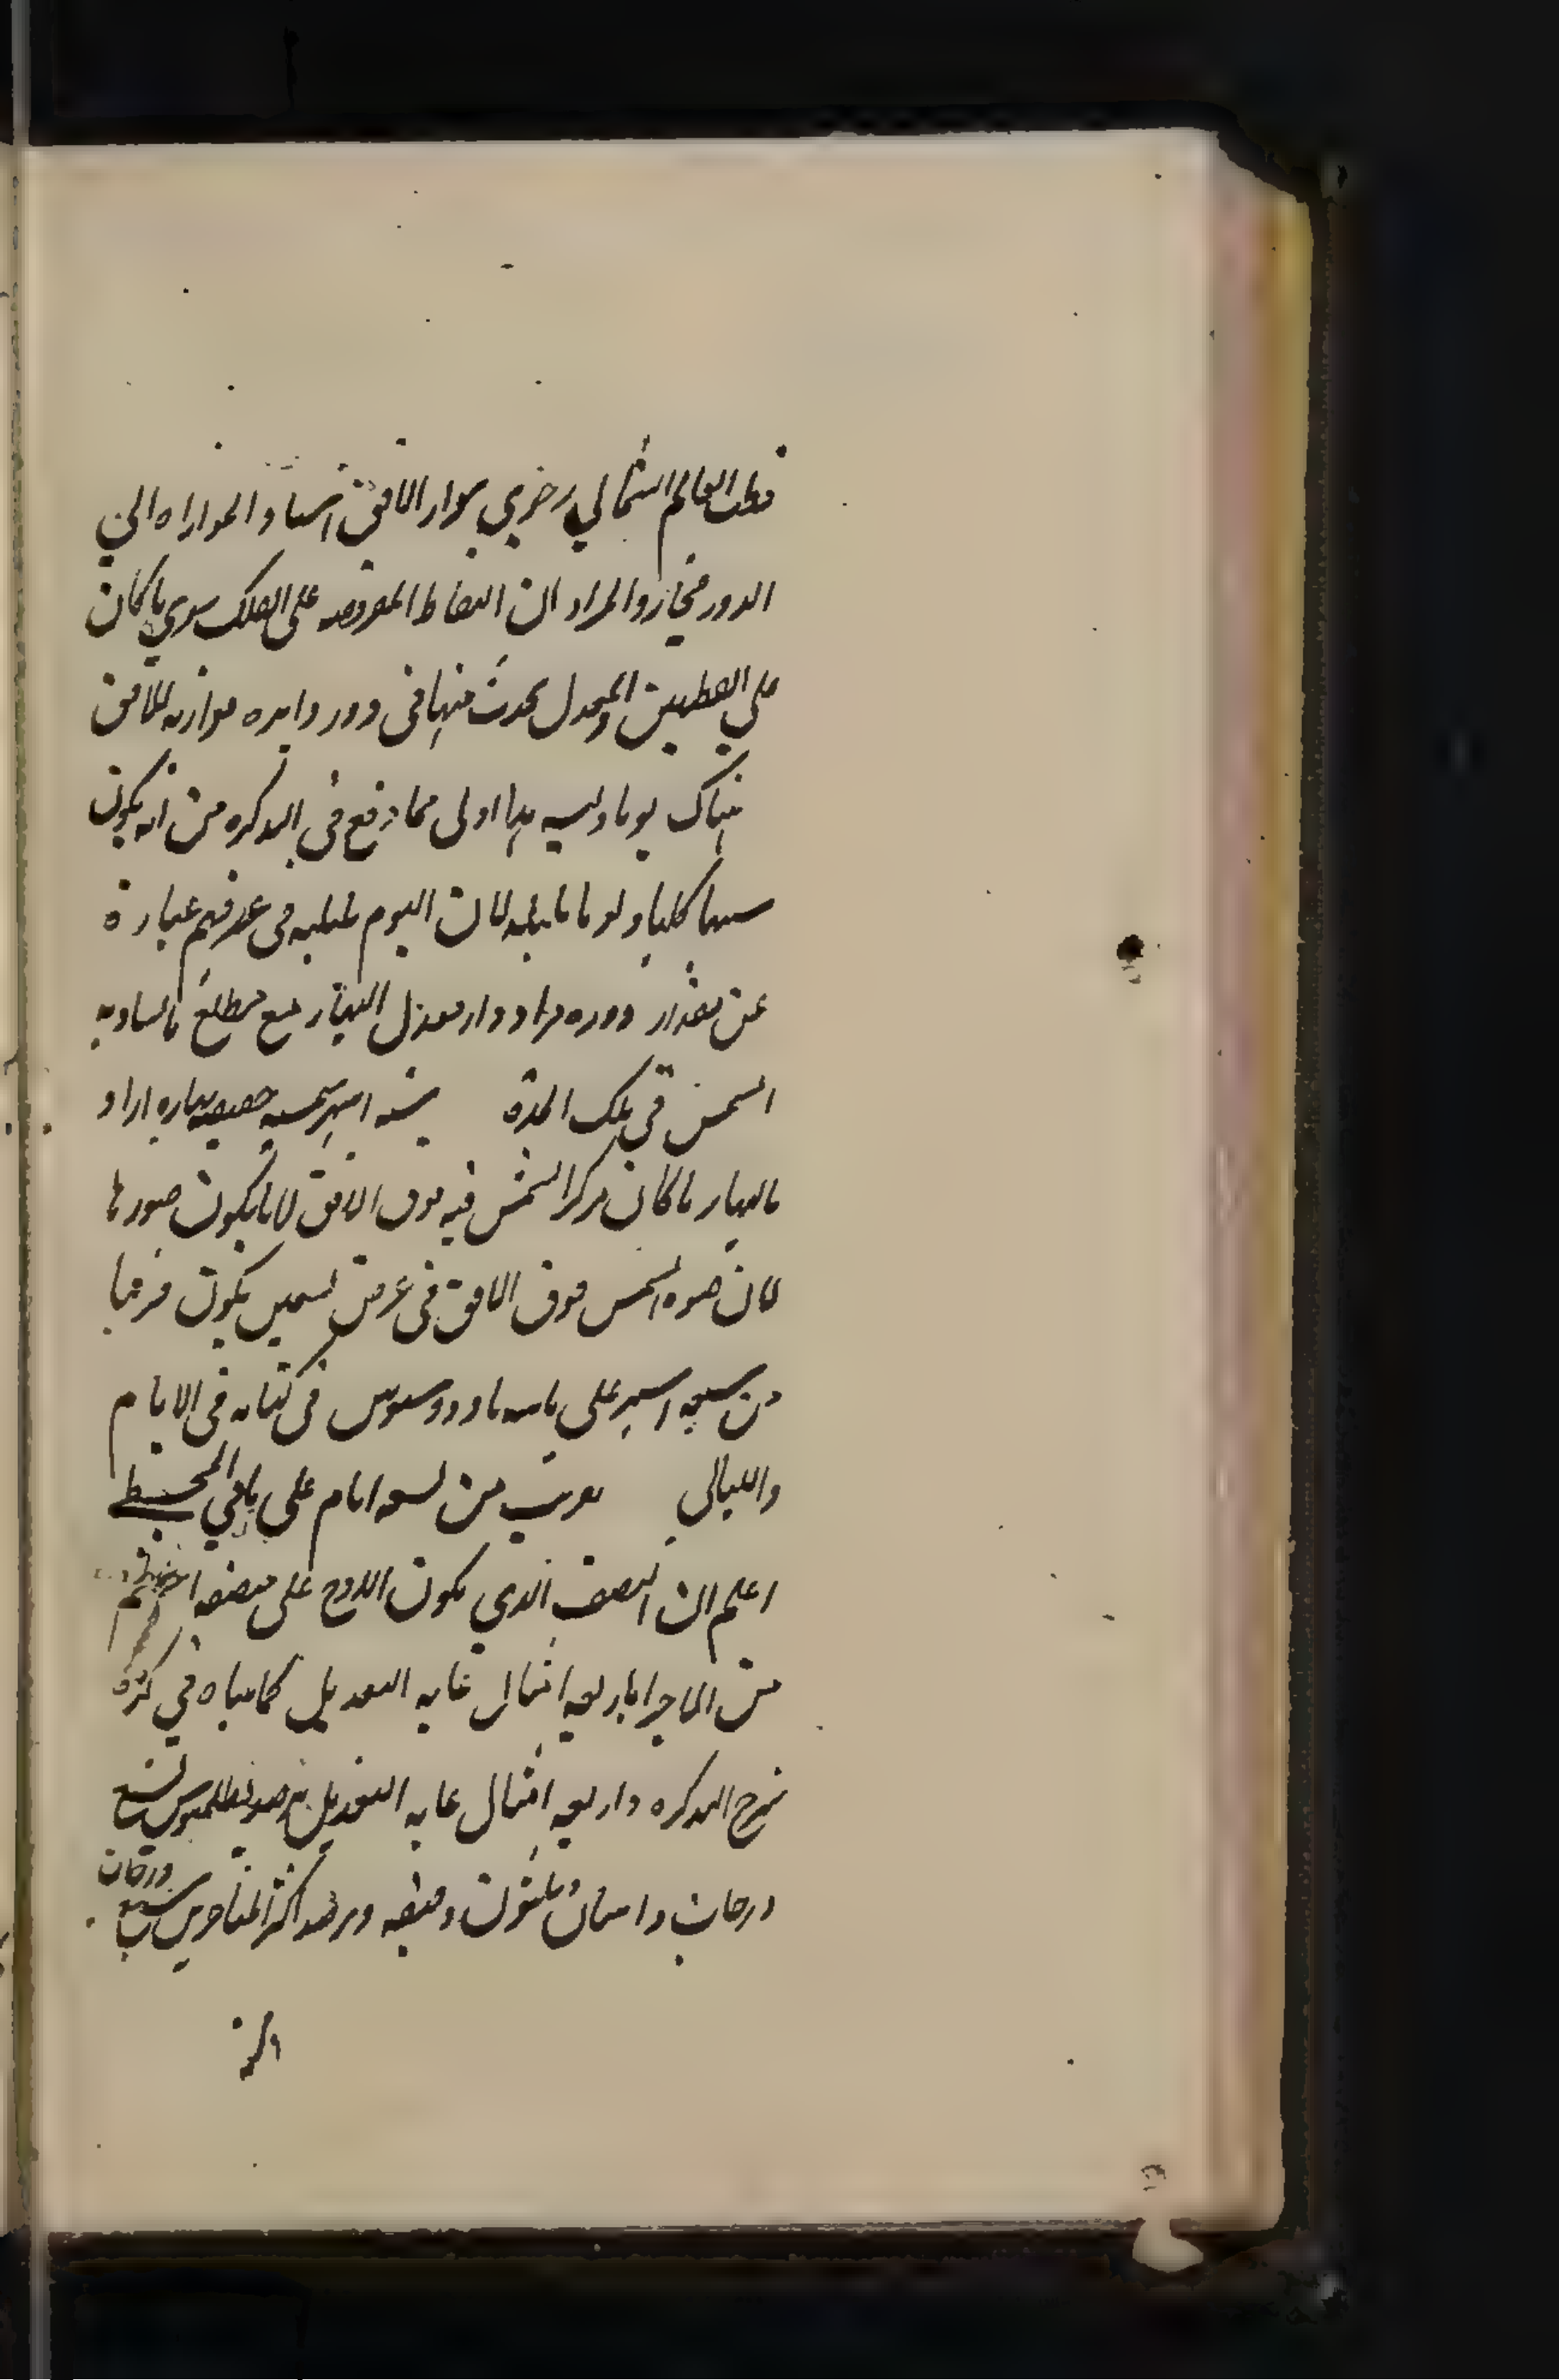 قطب العالم الشمالي رحوي يوازي الافق اسناد الموازاة الى
الدور مجاز والمراد ان النقاط المفروضة على الفلك سوى ما كان
على القطبين والمعدل يحدث منها في دور دايره موازية للافق
هناك يوما وليلة هذا اولى مما وقع في التذكره من انه يكون
سنتها كلها يوما بليلة لان اليوم بليلته في عرفهم عبارة
عن مقدار دوره من ادوار معدل النهار مع مطلع ما سارته
الشمس في تلك المدة ستة اشهر شمسيه حقيقية اراد
بالنهار ما كان مركز الشمس فيه فوق الافق لا ما يكون ضوءها
لان ضوء الشمس فوق الافق في عرض تسعين يكون قريبا
من سبعة اشهر على ما بينه ثاودوسيوس في كتابه في الايام
والليالي يقرب من تسعة ايام على ما في المجسطي
اعلم ان النصف الذي يكون الاوج على منتصفه اعظم
من الاخر باربعة امثال غاية التعديل كما بيناه في
شرح التذكره واربعة امثال غاية التعديل برصد بطلميوس تسع
درجات واثنان وثلثون دقيقه وبرصد اكثر المتاخرين سبع درجات